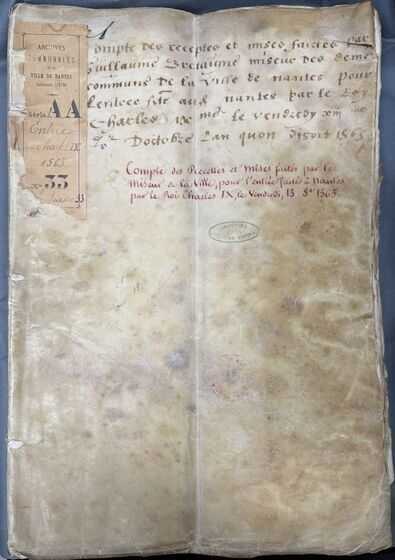 ARCHIVES
COMMUNALES
DE LA
VILLE DE NANTES
Série AA
Entrée
Charles IX
1565
N° 33
33
Compte des receptes et mises faictes par
Guillaume Bretaigne miseur des deniers
communs de la Ville de nantes pour
Lentree fte aud nantes par le Roy
Charles ix me le vendredy xii
Doctobre Lan quon disoit 1565
Compte des Recettes et Mises faites par le
Miseur de la Ville, pour l'entrée faite à Nantes
par le Roi Charles IX, le Vendredi, 13 8re 1565.